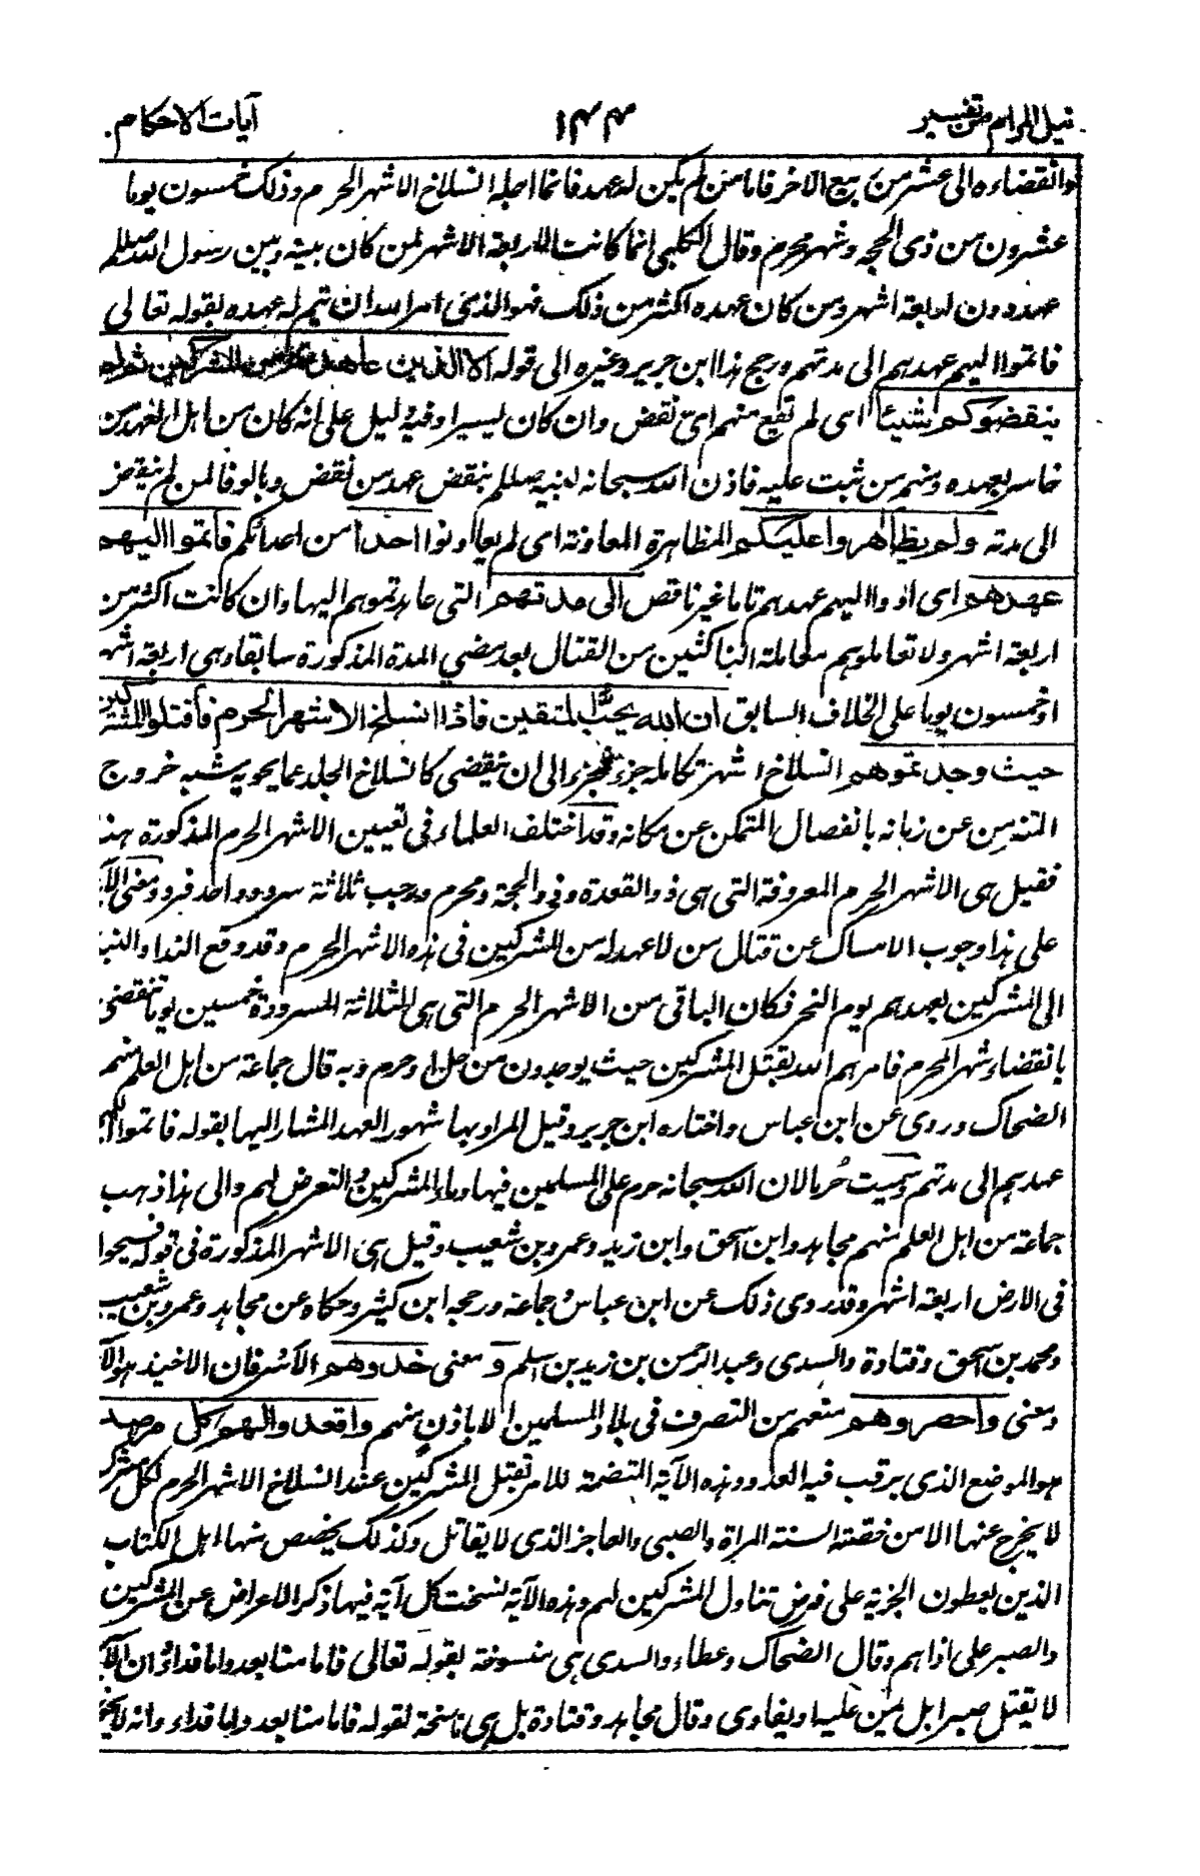 نيل المرام من تفسير ۱۴۴ آيات الاحكام
وانقضاءه الى عشر من ربيع الاخر فاما من لم يكن له عهد فانما اجله انسلاخ الاشهر الحرم وذلك خمسون يوما
عشرون من ذى الحجه وشهر محرم وقال الكلبى انما كانت الاربعة الاشهر لمن كان بينه وبين رسول الله صللم
عهد دون اربعة اشهر ومن كان عهده اكثر من ذلك فهو الذى امر الله ان يتم له عهده بقوله تعالى
فاتموا اليهم عهدهم الى مدتهم ورجح هذا ابن جرير وغيره الى قوله الا الذين عاهدتم من المشركين ثم لم
ينقضوكم شيئا اى لم تقع منهم اى نقض وان كان يسيرا وفيه دليل على انه كان من اهل العهد من
خاس بعهده ومنهم من ثبت عليه فاذن الله سبحانه لنبيه صللم بنقض عهد من نقض وبالوفا لمن لم ينقض
الى مدته ولم يظاهروا عليكم المظاهرة المعاونة اى لم يعاونوا احدا من اعدائكم فاتموا اليهم
عهدهم اى ادوا اليهم عهدهم تاما غير ناقص الى مدتهم التى عاهدتموهم اليها وان كانت اكثر من
اربعة اشهر ولا تعاملوهم معاملة الناكثين من القتال بعد مضي المدة المذكورة سابقا وهى اربعة اشهر
او خمسون يوما على الخلاف السابق ان الله يحب المتقين فاذا انسلخ الاشهر الحرم فاقتلوا المشركين
حيث وجدتموهم انسلاخ الشهر تكامله جزءا فجزءا الى ان ينقضى كانسلاخ الجلد عما يحويه شبه خروج
المتزمن عن زمانه بانفصال المتمكن عن مكانه وقد اختلف العلماء فى تعيين الاشهر الحرم المذكورة هنا
فقيل هى الاشهر الحرم المعروفة التى هى ذو القعدة وذو الحجة ومحرم ورجب ثلاثة سرد وواحد فرد ومعنى الآية
على هذا وجوب الامساك عن قتال من لا عهد له من المشركين فى هذه الاشهر الحرم وقد وقع الندا والنبذ
الى المشركين بعهدهم يوم النحر فكان الباقى من الاشهر الحرم التى هى الثلاثة المسرودة خمسين يوما تنقضى
بانقضاء شهر المحرم فامرهم الله بقتل المشركين حيث يوجدون من حل او حرم وبه قال جماعة من اهل العلم منهم
الضحاك وروى عن ابن عباس واختاره ابن جرير وقيل المراد بها شهور العهد المشار اليها بقوله فاتموا اليهم
عهدهم الى مدتهم وسميت حُرما لان الله سبحانه حرم على المسلمين فيها دماء المشركين والتعرض لهم والى هذا ذهب
جماعة من اهل العلم منهم مجاهد وابن اسحق وابن زيد وعمرو بن شعيب وقيل هى الاشهر المذكورة فى قوله فسيحوا
فى الارض اربعة اشهر وقد روى ذلك عن ابن عباس وجماعة ورجحه ابن كثير وحكاه عن مجاهد وعمرو بن شعيب
ومحمد بن اسحق وقتادة والسدى وعبد الرحمن بن زيد بن اسلم و معنى خذوهم الأسر فان الاخيذ هو الأسير
ومعنى واحصروهم منعهم من التصرف فى بلاد المسلمين الا باذن منهم واقعدوا لهم كل مرصد
هو الموضع الذى يرقب فيه العدو وهذه الآية المتضمنة للامر بقتل المشركين عند انسلاخ الاشهر الحرم لكل مشرك
لا يخرج عنها الا من خصته السنة المراة والصبى والعاجز الذى لا يقاتل وكذلك يخصص منها اهل الكتاب
الذين يعطون الجزية على فرض تناول المشركين لهم وهذه الآية نسخت كل آية فيها ذكر الاعراض عن المشركين
والصبر على اذاهم وقال الضحاك وعطاء والسدى هى منسوخة بقوله تعالى فاما منا بعد واما فداء وان الاسير
لا يقتل صبرا بل يمن عليه او يفادى وقال مجاهد وقتادة بل هى ناسخة لقوله فاما منا بعد واما فداء وانه لا يجوز